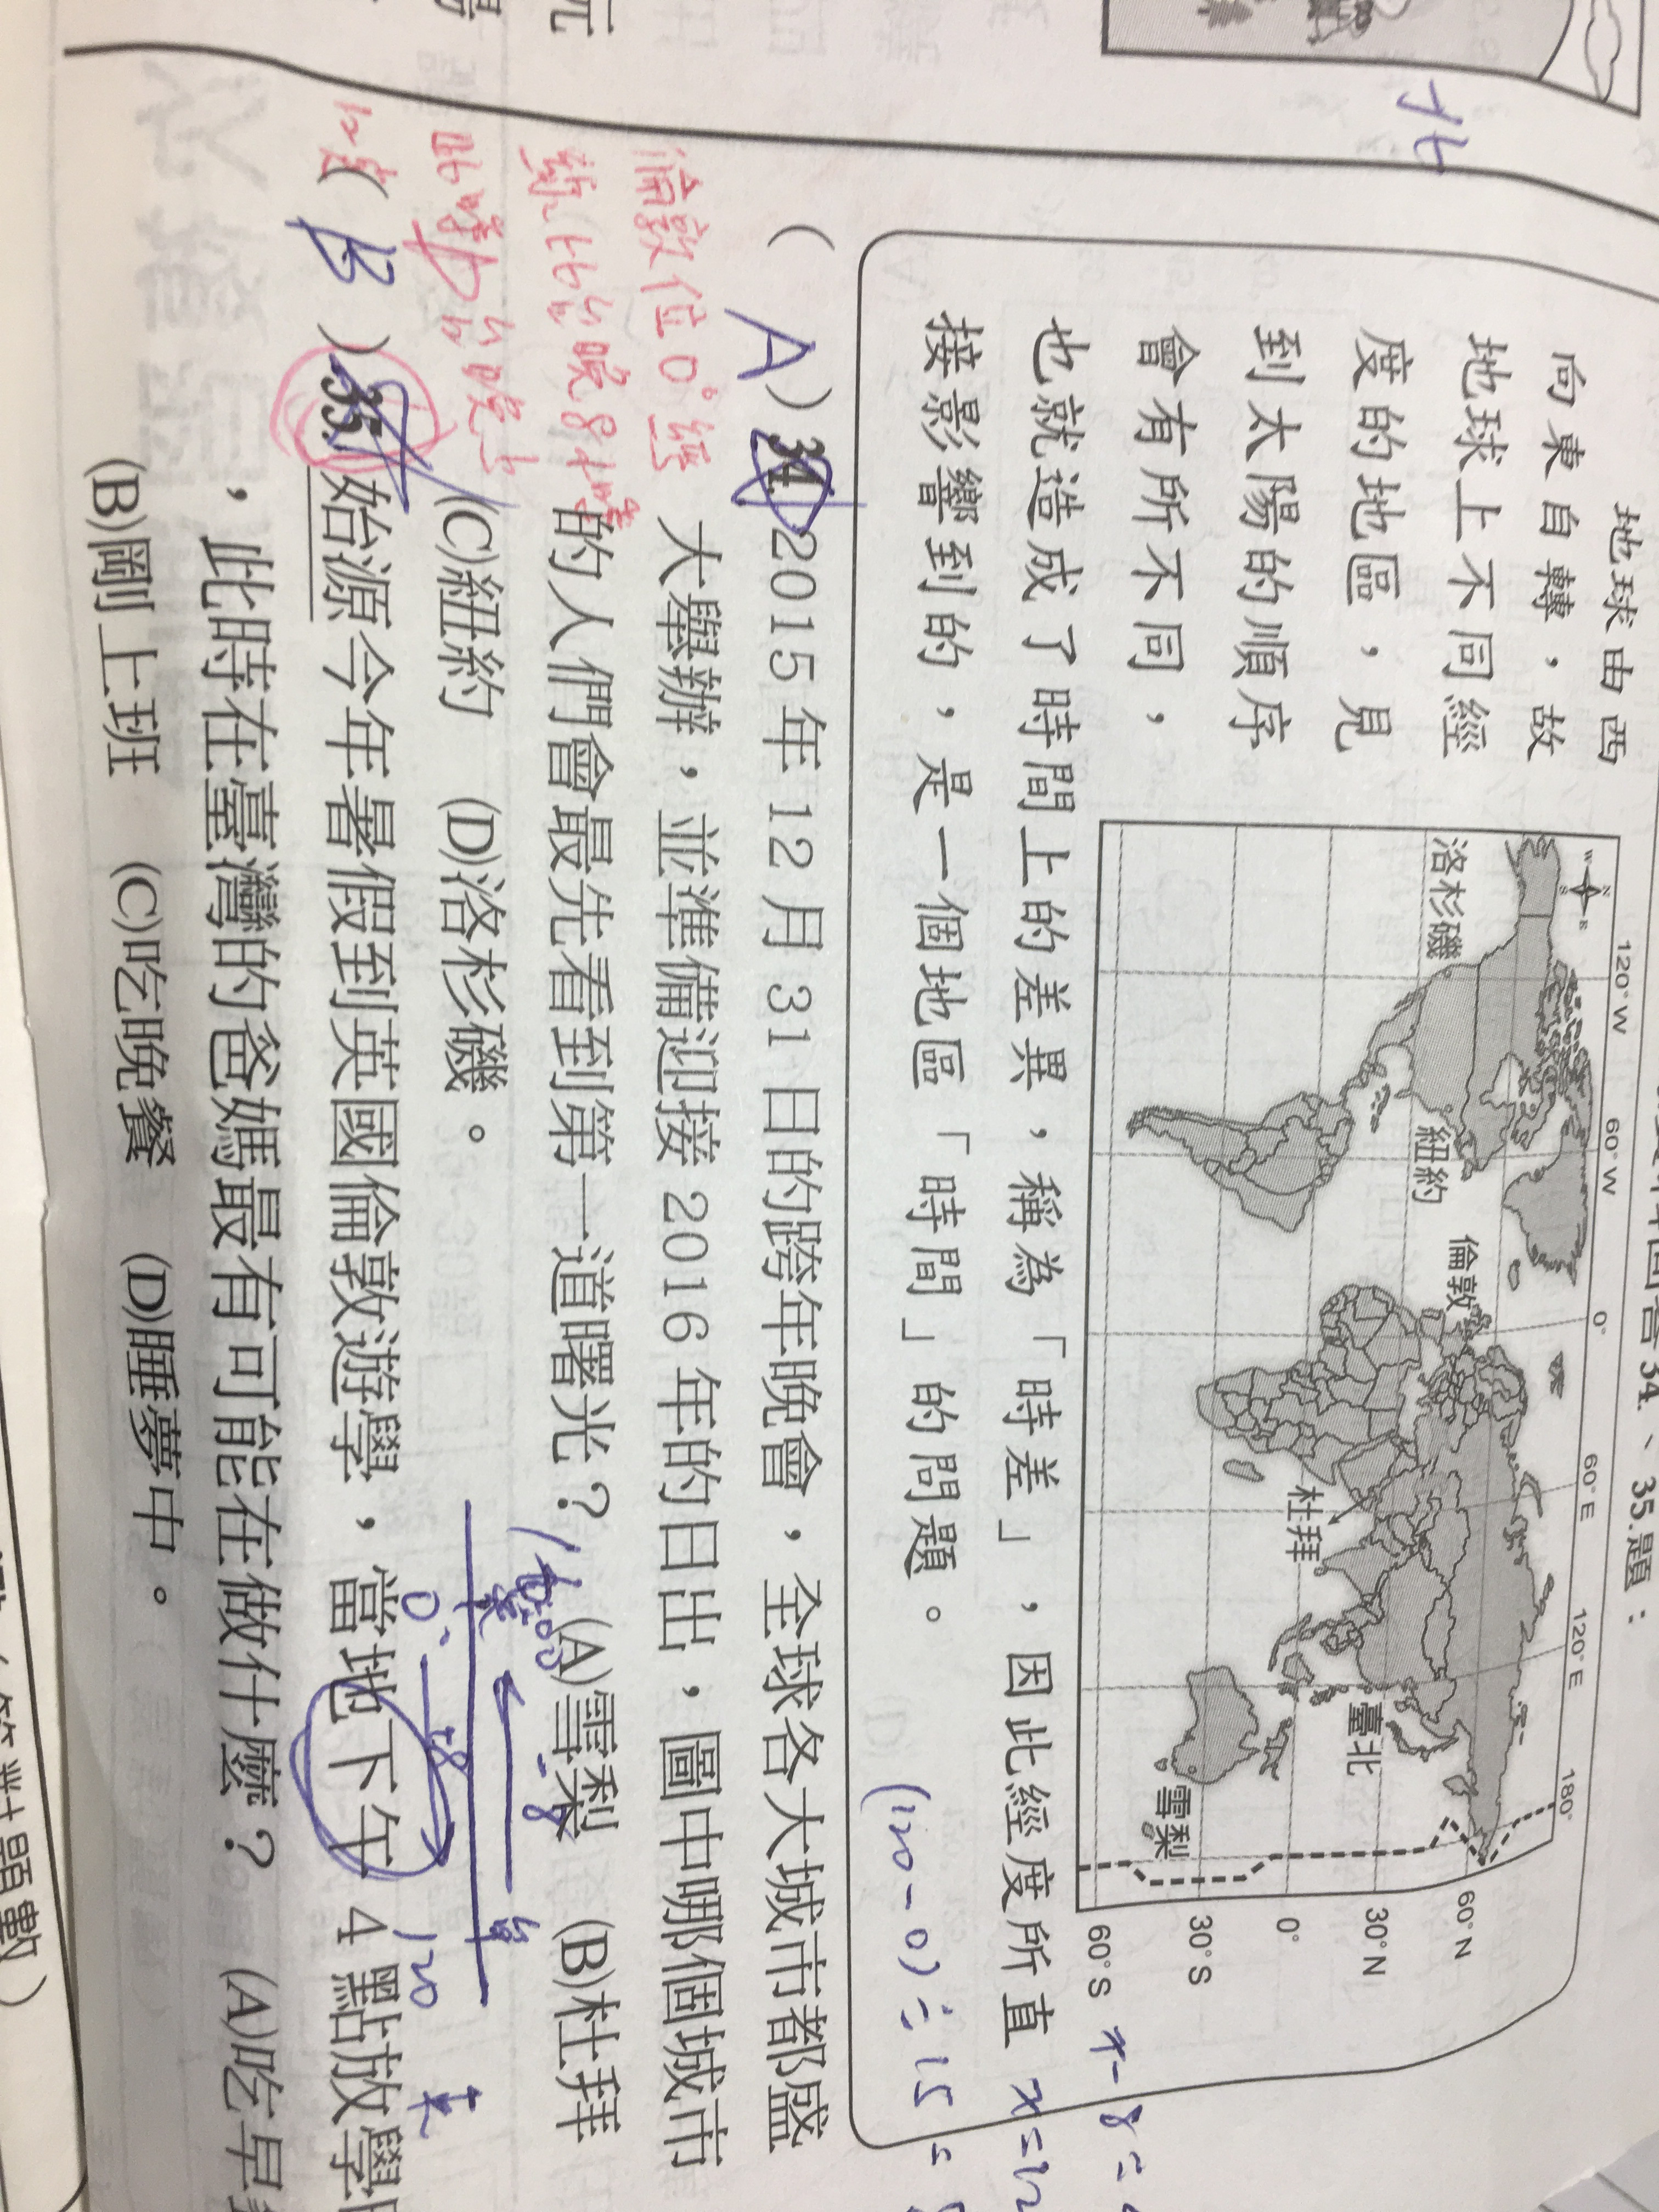 35.題：
地球由西
向東自轉，故
地球上不同經
度的地區，見
到太陽的順序
會有所不同，
也就造成了時間上的差異，稱為「時差」，因此經度所直
接影響到的，是一個地區「時間」的問題。
120°W 60°W 0° 60°E 120°E 180°
N
W E
S
洛杉磯
紐約
倫敦
杜拜
臺北
雪梨
60°N
30°N
0°
30°S
60°S
(120-0)÷15=
(A)34.2015年12月31日的跨年晚會，全球各大城市都盛
大舉辦，並準備迎接2016年的日出，圖中哪個城市
的人們會最先看到第一道曙光？ (A)雪梨 (B)杜拜
(C)紐約 (D)洛杉磯。
倫敦位0°經
-8
0° +8 120 東
(B)35.始源今年暑假到英國倫敦遊學，當地下午4點放學
，此時在臺灣的爸媽最有可能在做什麼？ (A)吃早
(B)剛上班 (C)吃晚餐 (D)睡夢中。